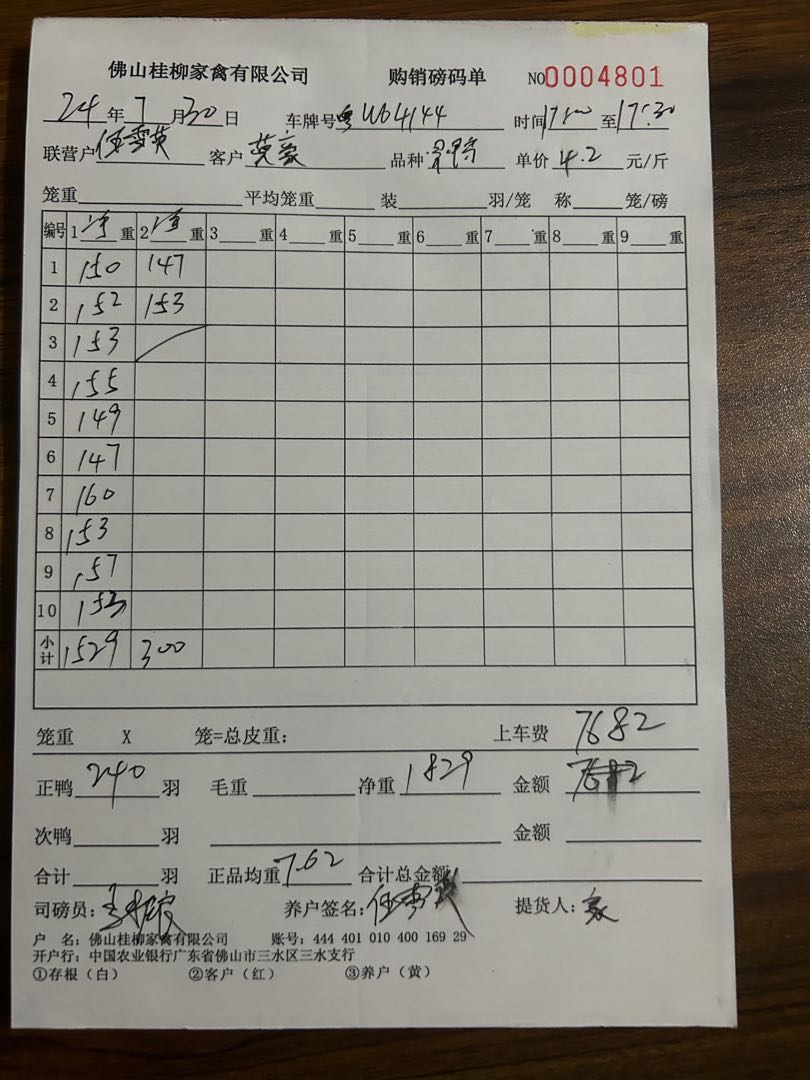 佛山桂柳家禽有限公司 购销磅码单 NO0004801
24年7月30日 车牌号粤W64144 时间17:00至17:30
联营户任雪英 客户英豪 品种 单价4.2元/斤
笼重 平均笼重 装 羽/笼 称 笼/磅
编号 1净重 2净重 3重 4重 5重 6重 7重 8重 9重
1 150 147
2 152 153
3 153
4 155
5 149
6 147
7 160
8 153
9 157
10 153
小计 1529 300
笼重 X 笼=总皮重: 上车费 7682
正鸭240羽 毛重 净重1829 金额 7682
次鸭 羽 金额
合计 羽 正品均重7.62 合计总金额
司磅员: 养户签名:任雪英 提货人:豪
户 名: 佛山桂柳家禽有限公司 账号: 444 401 010 400 169 29
开户行: 中国农业银行广东省佛山市三水区三水支行
①存根(白) ②客户(红) ③养户(黄)